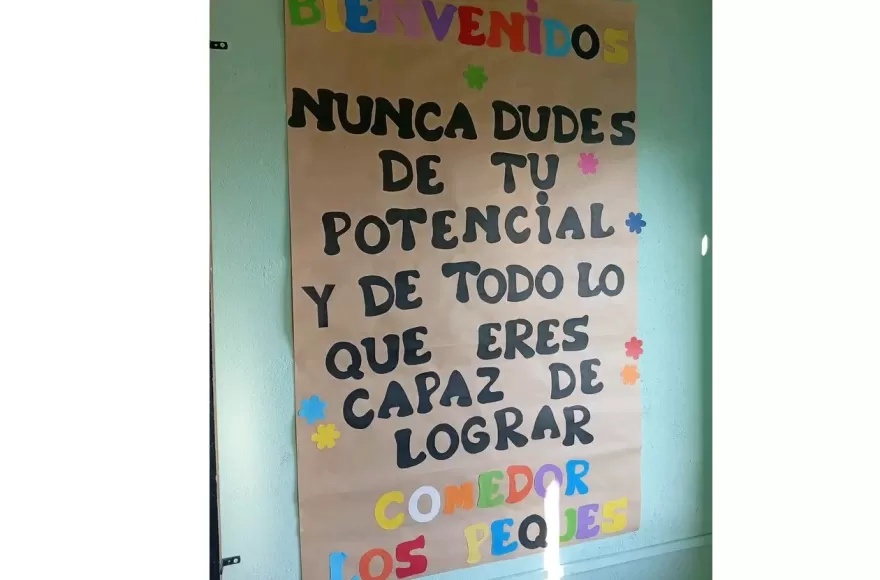 BIENVENiDOS
NUNCA DUDES
DE TU
POTENCiAL
Y DE TODO LO
QUE ERES
CAPAZ DE
LOGRAR
COMEDOR
LOS PEQUES